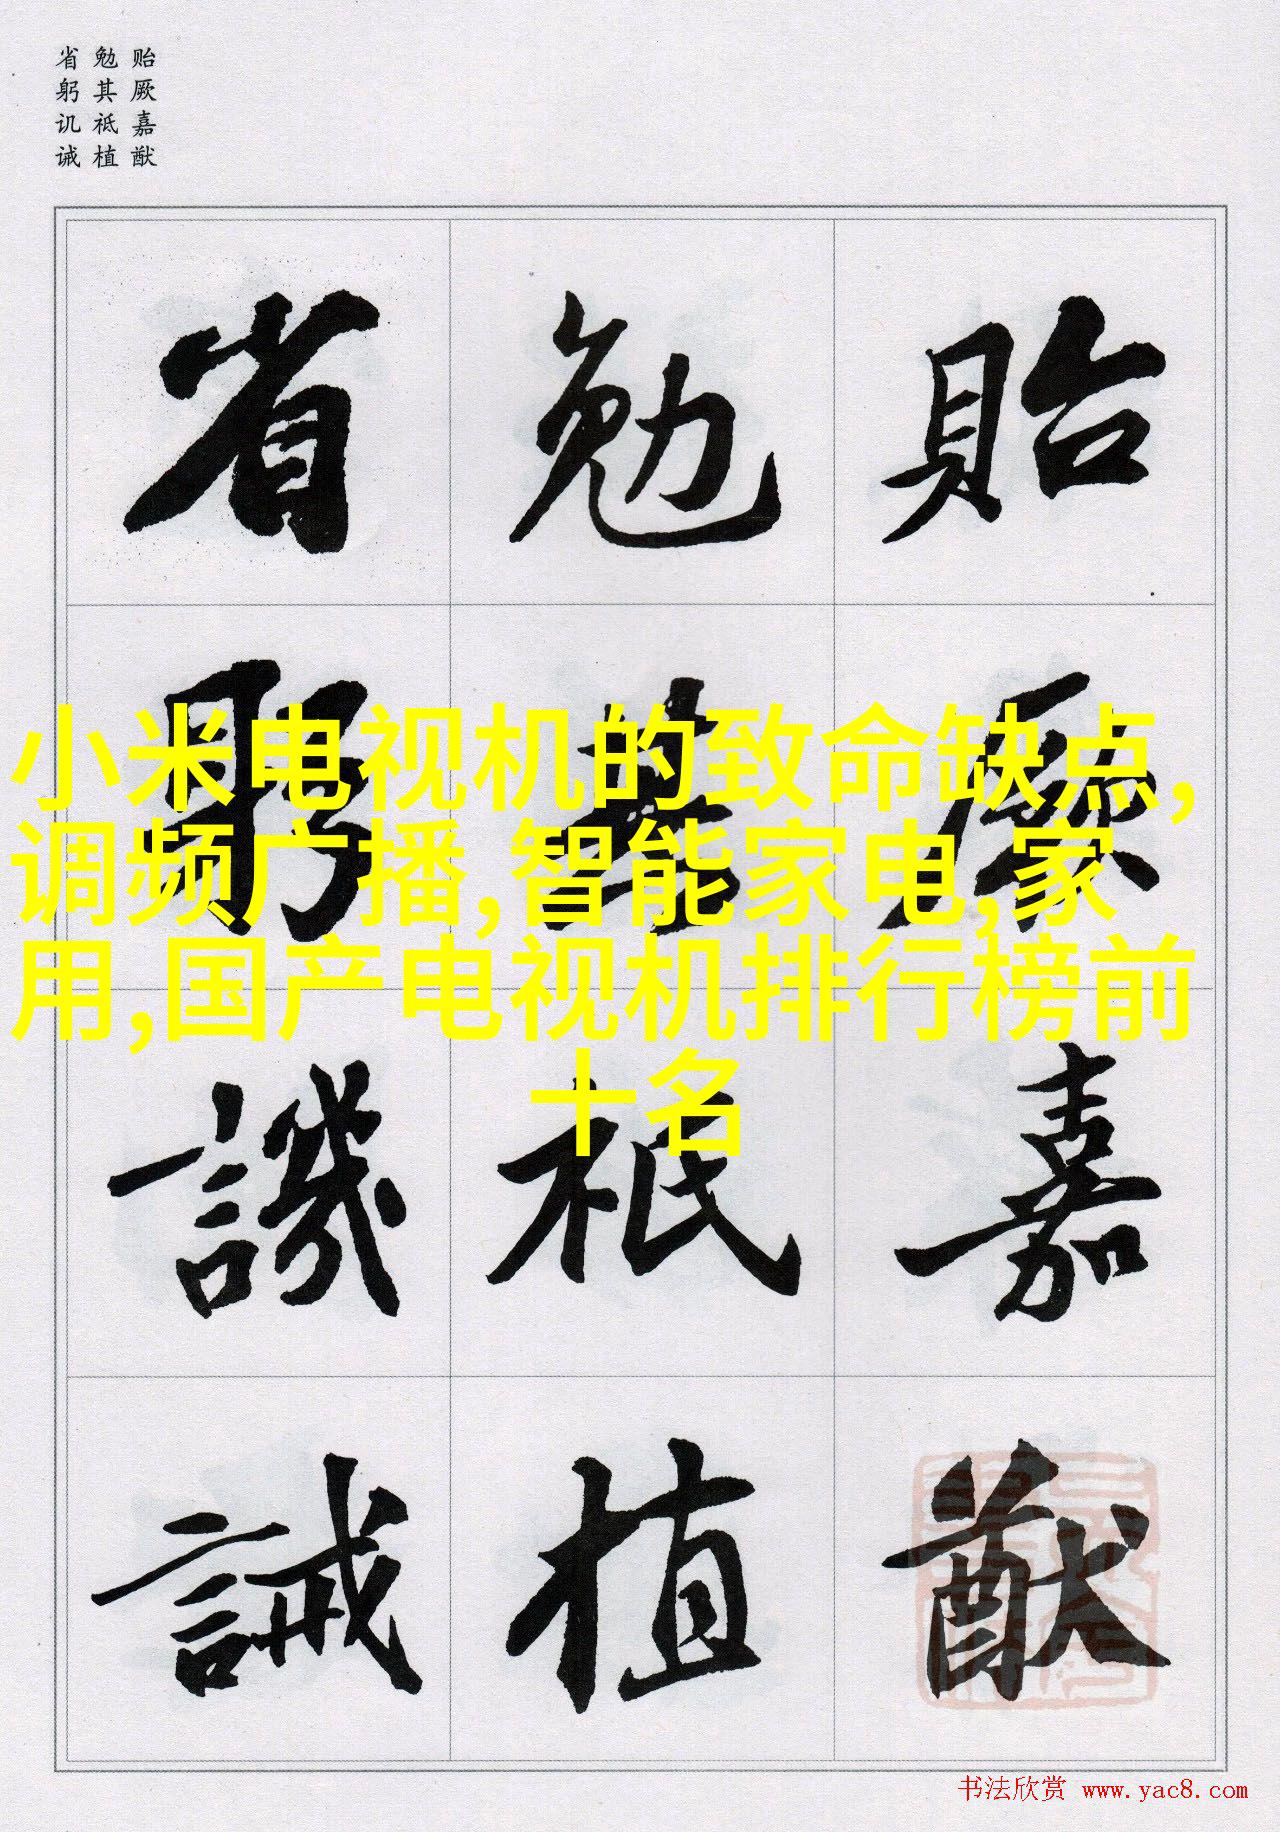 贻厥嘉猷
勉其祗植
省躬讥诫
貽厥嘉猷
勉其祗植
省躬譏誡
小米电视机的致命缺点,
调频广播,智能家电,家
用,国产电视机排行榜前
十名
书法欣赏 www.yac8.com